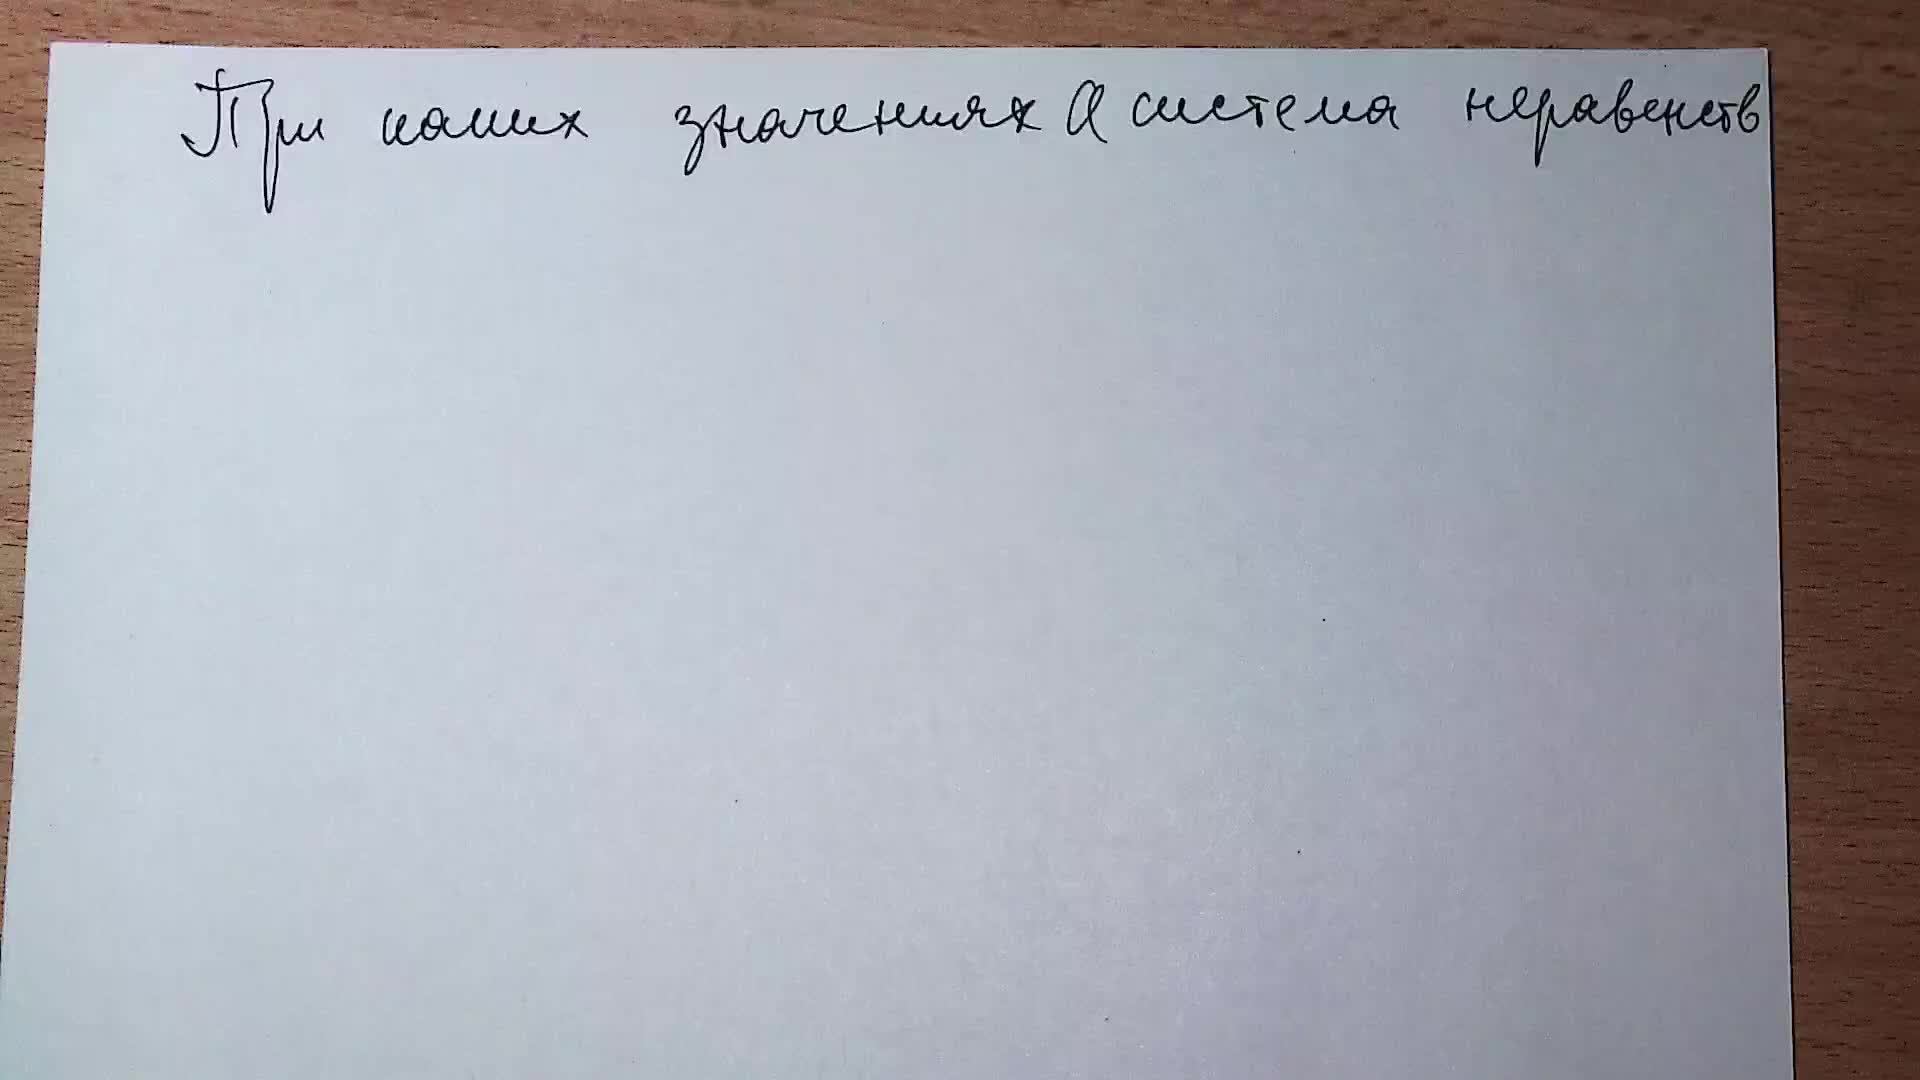 При каких значениях a система неравенств